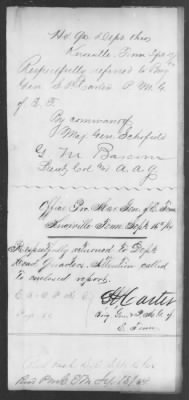 Hd Qrs Dept Ohio
Knoxville, Tenn Sept
Respectfully referred to Brig
Gen S P Carter P. M. G
of E. T.
By command of
Maj Gen Schofield
G. M. Bascom
Lieut Col and A. A. G
Office Pro Mar Gen of E Tenn
Knoxville Tenn Sept 15 /64
Respectfully returned to Dept
Head Quarters. Attention called
to enclosed report.
S P Carter
Brig Gen & P M G of
E Tenn
Recd Sep 15/64